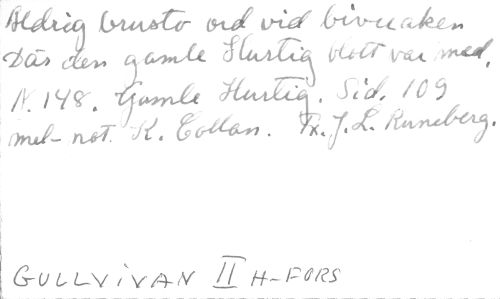 Aldrig brusto ord vid bivuaken
Där den gamle Hurtig blott var med.
N. 148. Gamle Hurtig. Sid. 109
mel- not. K. Collan. Tx. J. L. Runeberg.
GULLVIVAN II H-FORS